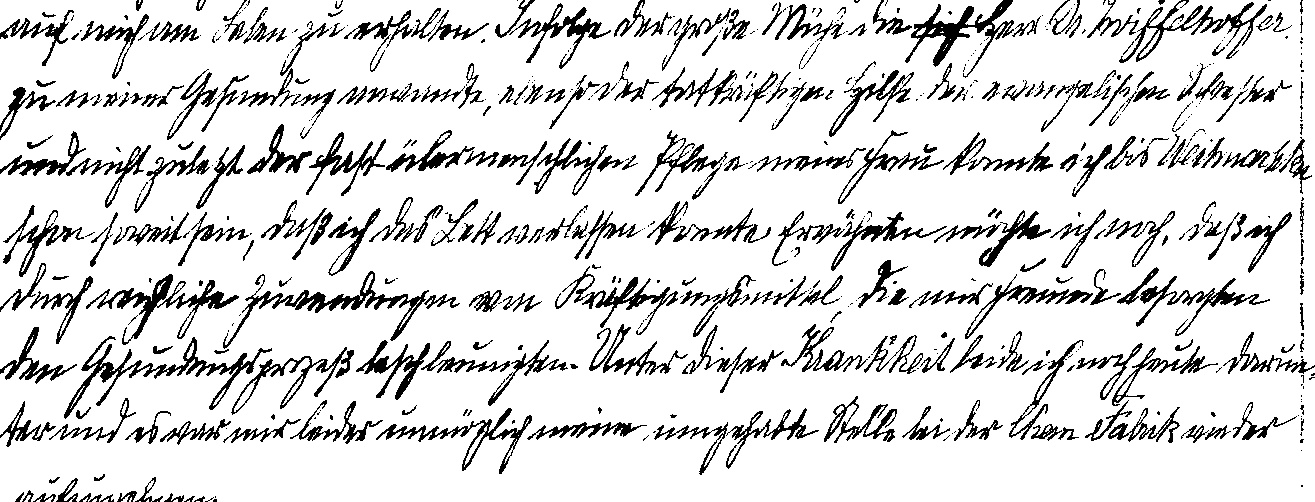 auch mich am Leben zu erhalten. Infolge der große Mühe die sich Herr Dr.
zu meiner Gesundung anwandte, ebenso der tatkräftigen Hilfe der evangelischen Schwester
und nicht zuletzt der fast übermenschlichen Pflege meiner Frau konnte ich bis Weihnachten
schon soweit sein, daß ich das Bett verlassen konnte. Erwähnen möchte ich noch, daß ich
durch reichliche Zuwendungen von Kräftigungsmittel, die mir Freunde besorgten
den Gesundungsprozeß beschleunigten. Unter dieser Krankheit leide ich noch heute darun-
ter und es war mir leider unmöglich meine innegehabte Stelle bei der Fabrik wieder
aufzunehmen.